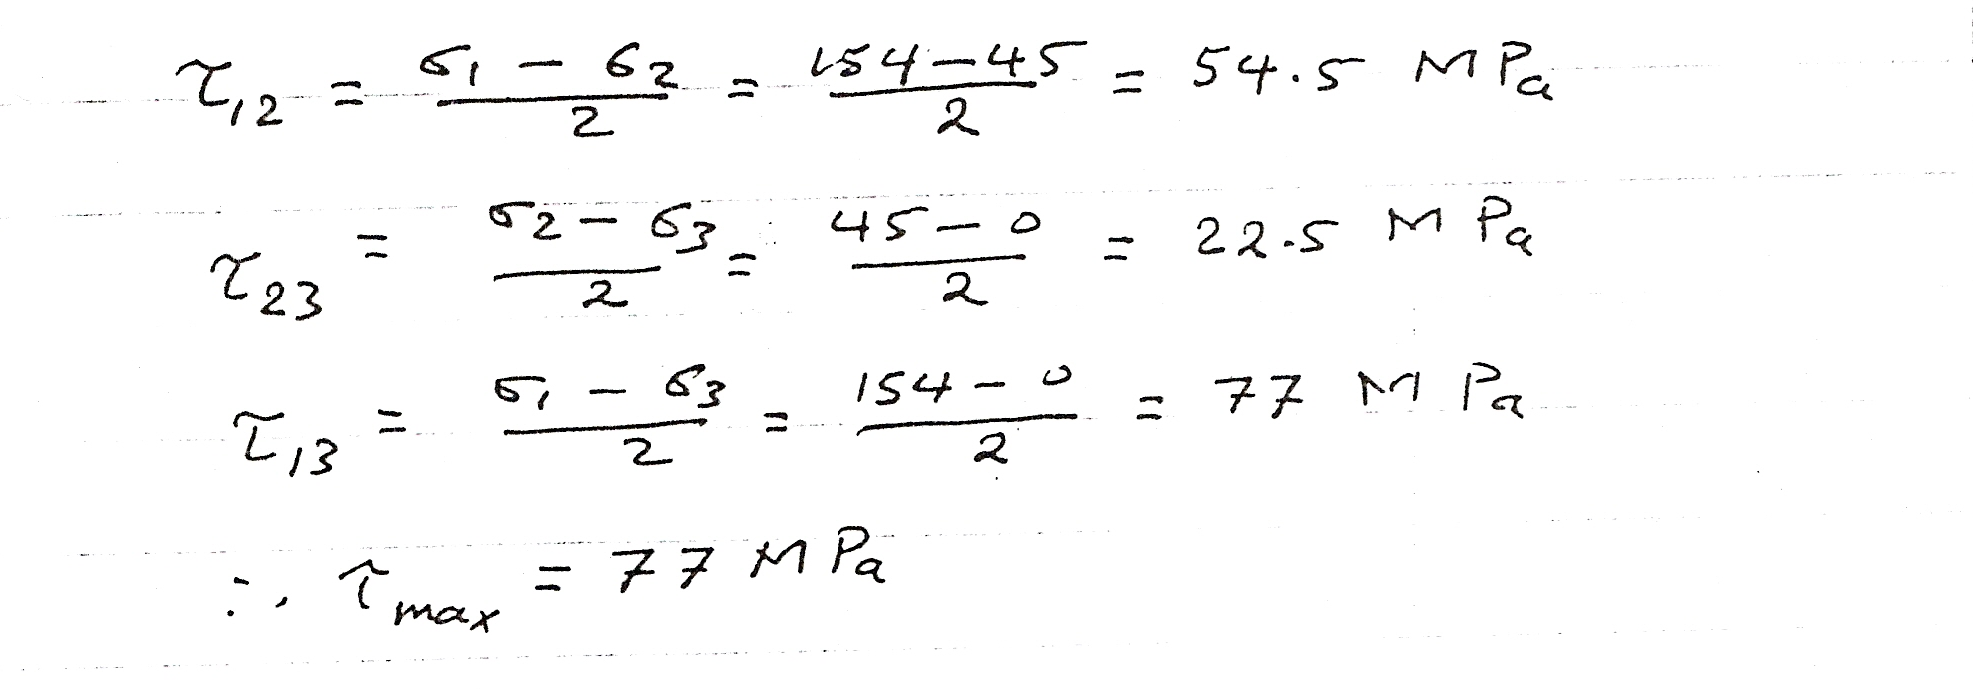 τ₁₂ = (σ₁ − σ₂)/2 = (154 − 45)/2 = 54.5 MPa
τ₂₃ = (σ₂ − σ₃)/2 = (45 − 0)/2 = 22.5 MPa
τ₁₃ = (σ₁ − σ₃)/2 = (154 − 0)/2 = 77 MPa
∴ τmax = 77 MPa